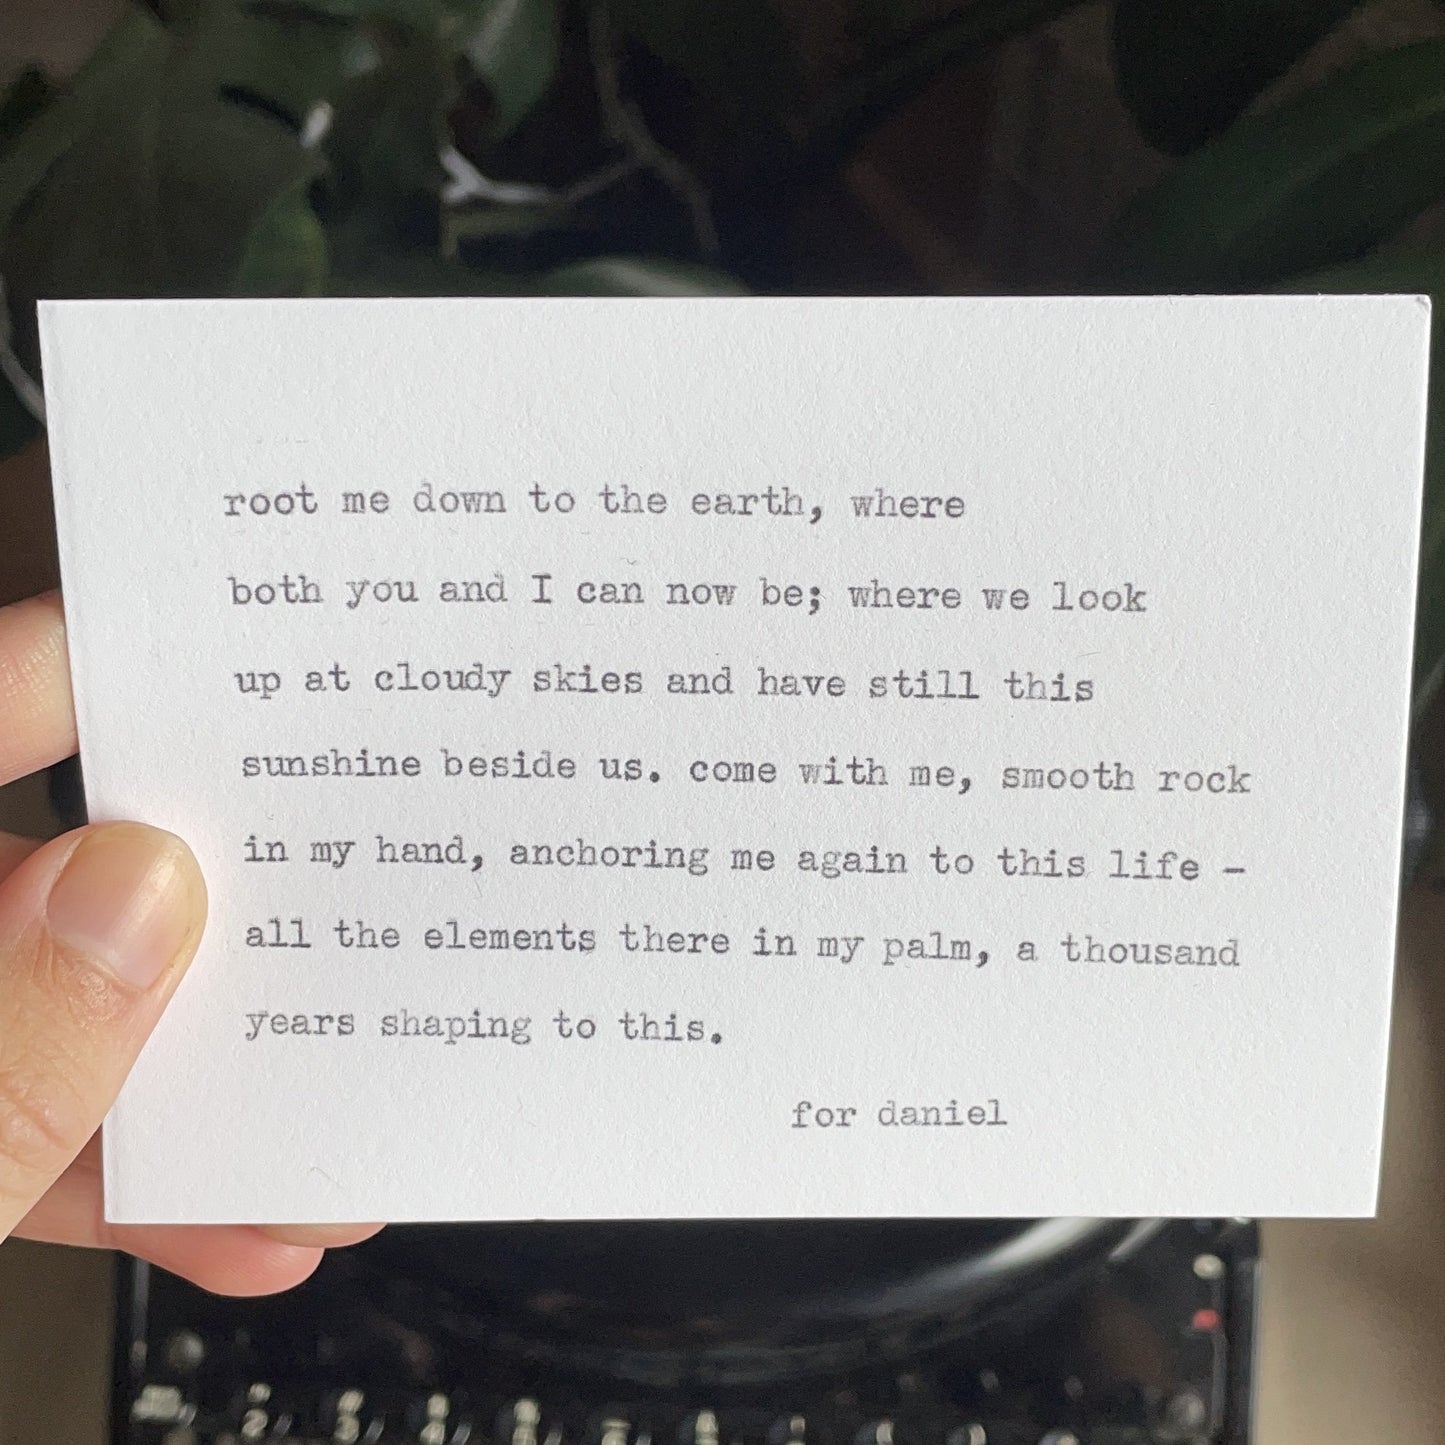 root me down to the earth, where
both you and I can now be; where we look
up at cloudy skies and have still this
sunshine beside us. come with me, smooth rock
in my hand, anchoring me again to this life -
all the elements there in my palm, a thousand
years shaping to this.
for daniel
2 3 4